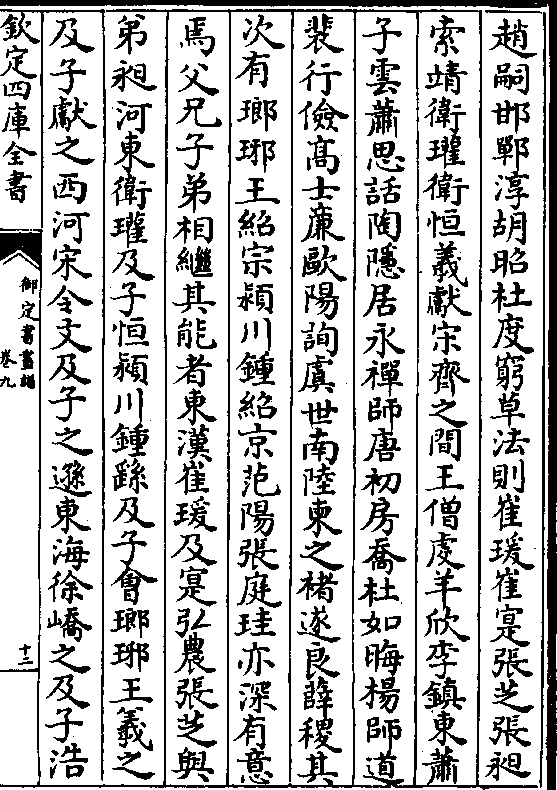 趙嗣邯鄲淳胡昭杜度窮草法則崔瑗崔寔張芝張昶
索靖衛瓘衛恒羲獻宋齊之間王僧虔羊欣李鎮東蕭
子雲蕭思話陶隱居永禪師唐初房喬杜如晦楊師道
裴行儉高士廉歐陽詢虞世南陸柬之褚遂良薛稷其
次有瑯琊王紹宗潁川鍾紹京范陽張庭珪亦深有意
焉父兄子弟相繼其能者東漢崔瑗及寔弘農張芝與
弟昶河東衛瓘及子恒潁川鍾繇及子會瑯琊王羲之
及子獻之西河宋令文及子之遜東海徐嶠之及子浩
欽定四庫全書
御定書畫譜
卷九
十二